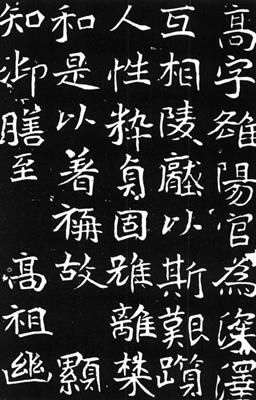 高字雒陽官為深澤
互相陵以斯艱躓
人性粹貞固雖離
和是以著稱故顯
知御膳至高祖幽